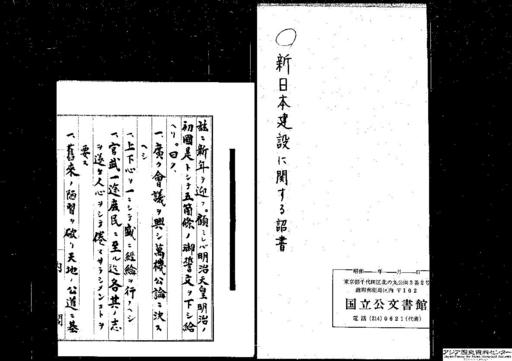 ○新日本建設に関する詔書
昭和 年 月 日
東京都千代田区北の丸公園3番2号
〒102
国立公文書館
電話 (214) 0621 (代表)
茲ニ新年ヲ迎フ。顧ミレバ明治天皇明治ノ
初國是トシテ五箇條ノ御誓文ヲ下シ給
ヘリ。曰ク、
一、廣ク會議ヲ興シ萬機公論ニ決ス
ヘシ
一、上下心ヲ一ニシテ盛ニ經綸ヲ行フヘシ
一、官武一途庶民ニ至ル迄各其ノ志
ヲ遂ケ人心ヲシテ倦マサラシメンコトヲ
要ス
一、舊來ノ陋習ヲ破リ天地ノ公道ニ基
内閣
アジア歴史資料センター